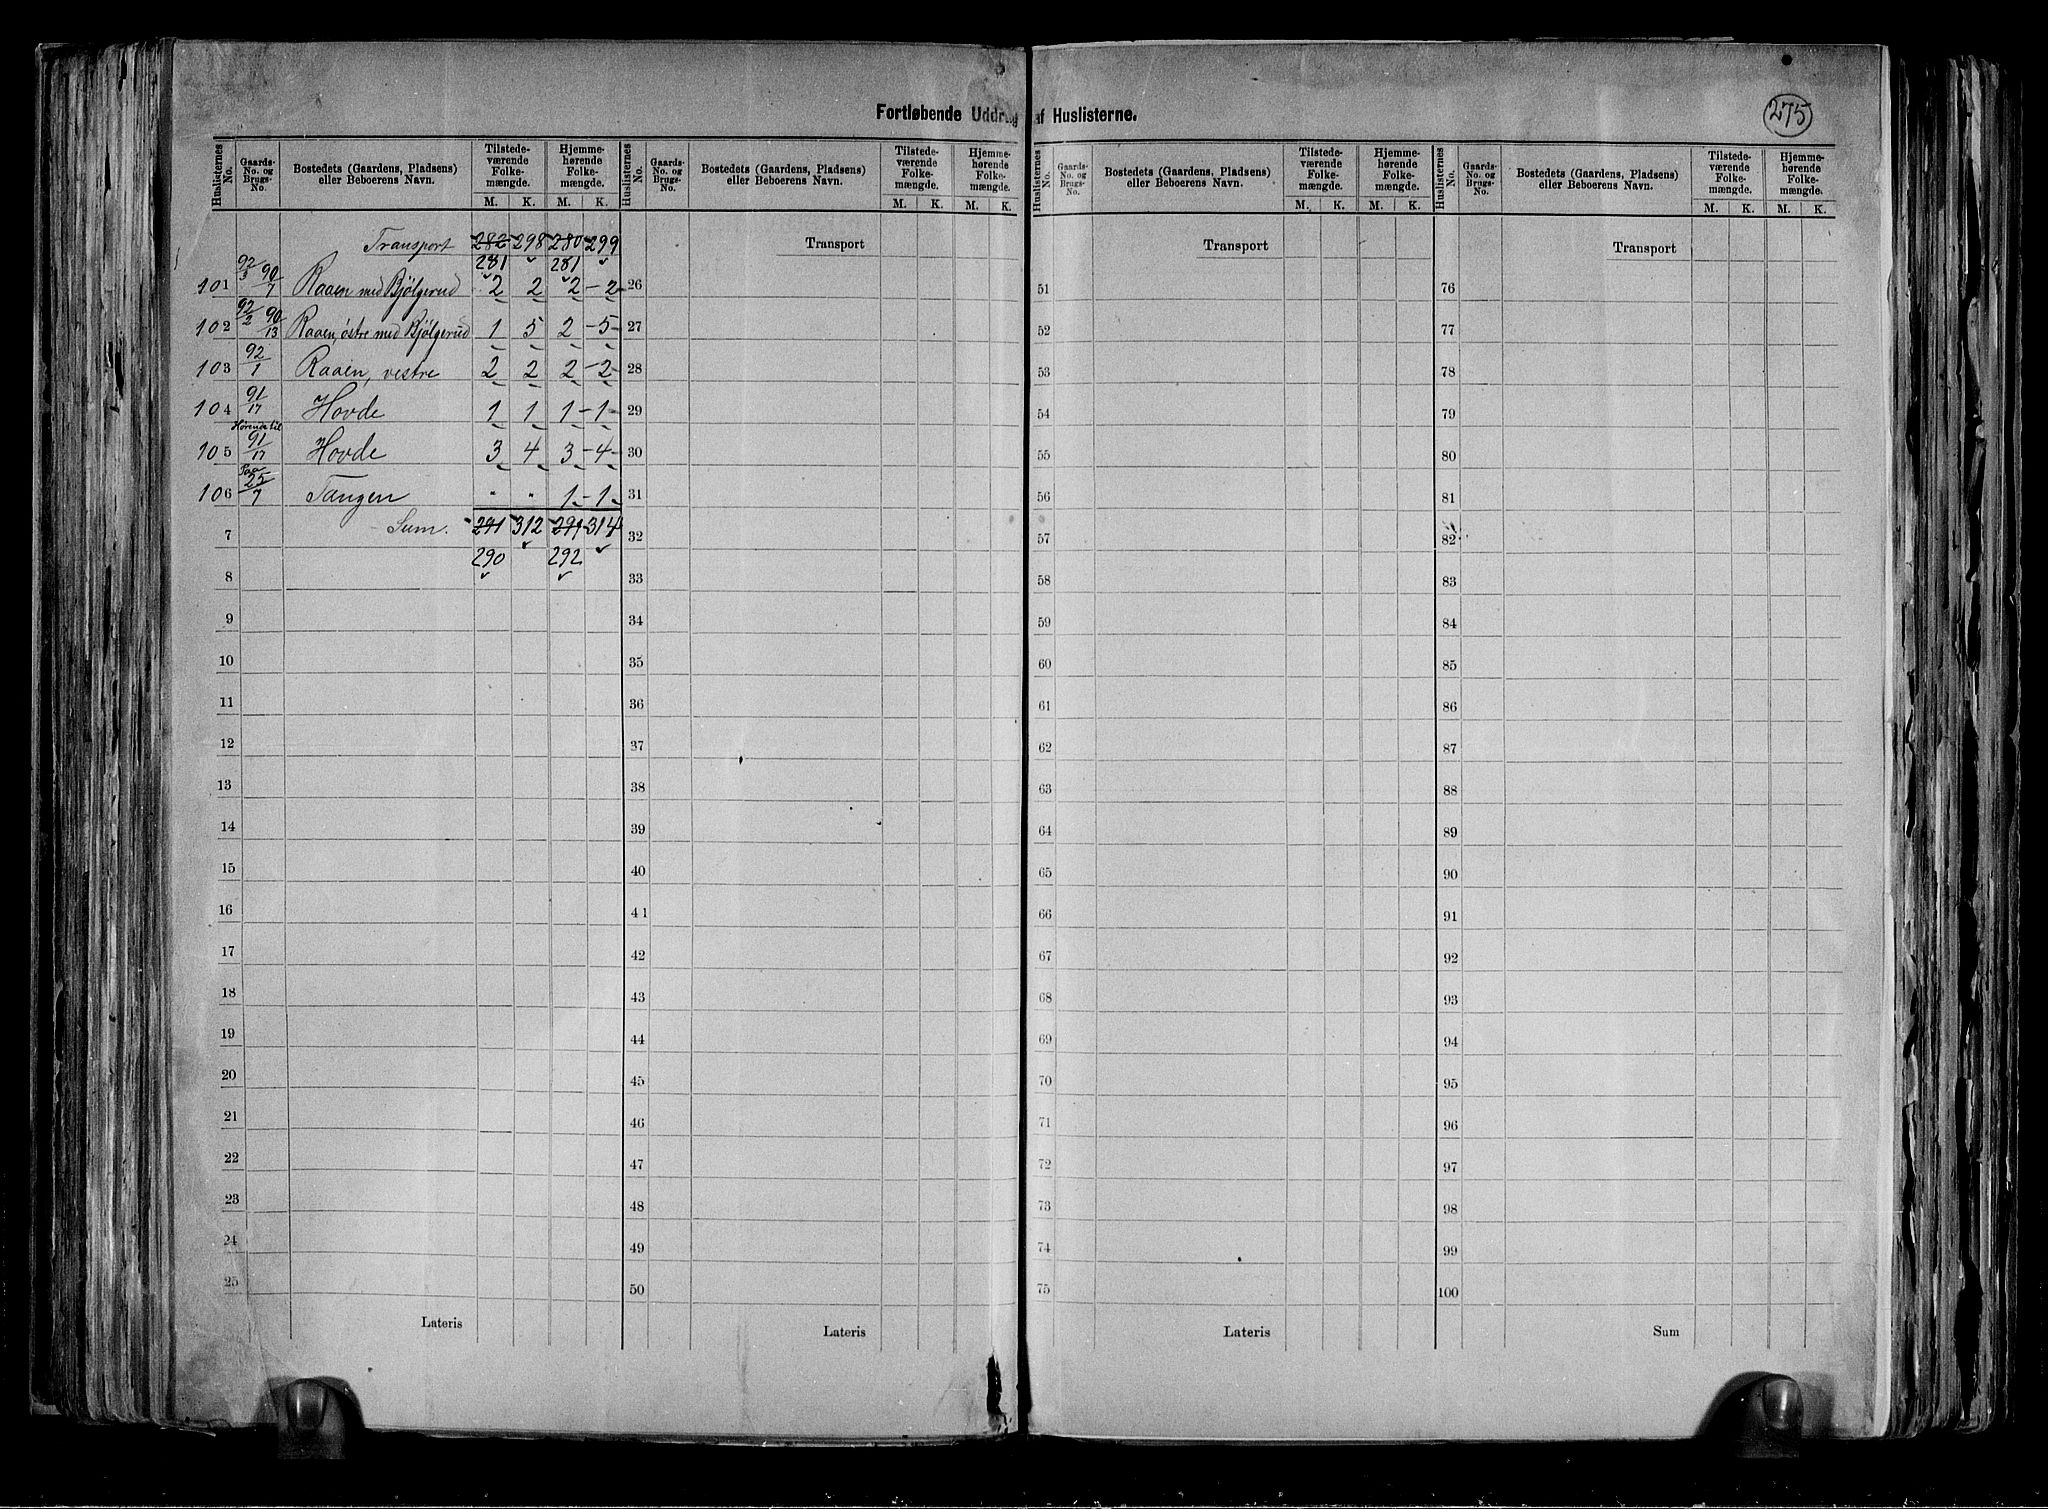 Fortløbende Uddrag af Huslisterne.
275
Huslisternes No. | Gaards-No. og Brugs-No. | Bostedets (Gaardens, Pladsens) eller Beboerens Navn. | Tilstedeværende Folkemængde. M. K. | Hjemmehørende Folkemængde. M. K.
Transport 282 298 280 299
281 281
101 92/3 90/7 Raaen med Bjölgerud 2 2 2 2
102 92/2 90/13 Raaen, östre med Bjölgerud 1 5 2 5
103 92/1 Raaen, vestre 2 2 2 2
104 91/17 Hovde 1 1 1 1
Hørende til
105 91/17 Hovde 3 4 3 4
Paa
106 25/7 Tangen " " 1 1
7 Sum. 291 312 291 314
290 292
8
9
10
11
12
13
14
15
16
17
18
19
20
21
22
23
24
25
Lateris
Huslisternes No. | Gaards-No. og Brugs-No. | Bostedets (Gaardens, Pladsens) eller Beboerens Navn. | Tilstedeværende Folkemængde. M. K. | Hjemmehørende Folkemængde. M. K.
Transport
26
27
28
29
30
31
32
33
34
35
36
37
38
39
40
41
42
43
44
45
46
47
48
49
50
Lateris
Huslisternes No. | Gaards-No. og Brugs-No. | Bostedets (Gaardens, Pladsens) eller Beboerens Navn. | Tilstedeværende Folkemængde. M. K. | Hjemmehørende Folkemængde. M. K.
Transport
51
52
53
54
55
56
57
58
59
60
61
62
63
64
65
66
67
68
69
70
71
72
73
74
75
Lateris
Huslisternes No. | Gaards-No. og Brugs-No. | Bostedets (Gaardens, Pladsens) eller Beboerens Navn. | Tilstedeværende Folkemængde. M. K. | Hjemmehørende Folkemængde. M. K.
Transport
76
77
78
79
80
81
82
83
84
85
86
87
88
89
90
91
92
93
94
95
96
97
98
99
100
Sum